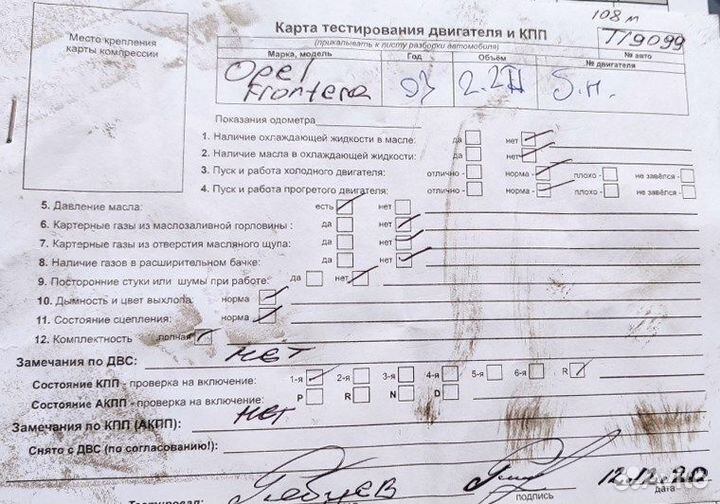 108 м
Место крепления карты компрессии
Карта тестирования двигателя и КПП
(прикалывать к листу разборки автомобиля)
TI9099
№ авто
Марка, модель Год Объём № двигателя
Opel Frontera 03 2.2 Б.н.
Показания одометра
1. Наличие охлаждающей жидкости в масле: да нет
2. Наличие масла в охлаждающей жидкости: да нет
3. Пуск и работа холодного двигателя: отлично - норма - плохо - не завёлся -
4. Пуск и работа прогретого двигателя: отлично - норма - плохо - не завёлся -
5. Давление масла: есть нет
6. Картерные газы из маслозаливной горловины : да нет
7. Картерные газы из отверстия масляного щупа: да нет
8. Наличие газов в расширительном бачке: да нет
9. Посторонние стуки или шумы при работе: да нет
10. Дымность и цвет выхлопа: норма
11. Состояние сцепления: норма
12. Комплектность полная
Замечания по ДВС: нет
Состояние КПП - проверка на включение: 1-я 2-я 3-я 4-я 5-я 6-я R
Состояние АКПП - проверка на включение: P R N D
Замечания по КПП (АКПП): нет
Снято с ДВС (по согласованию!):
Тестировал: подпись 12.12.20 дата